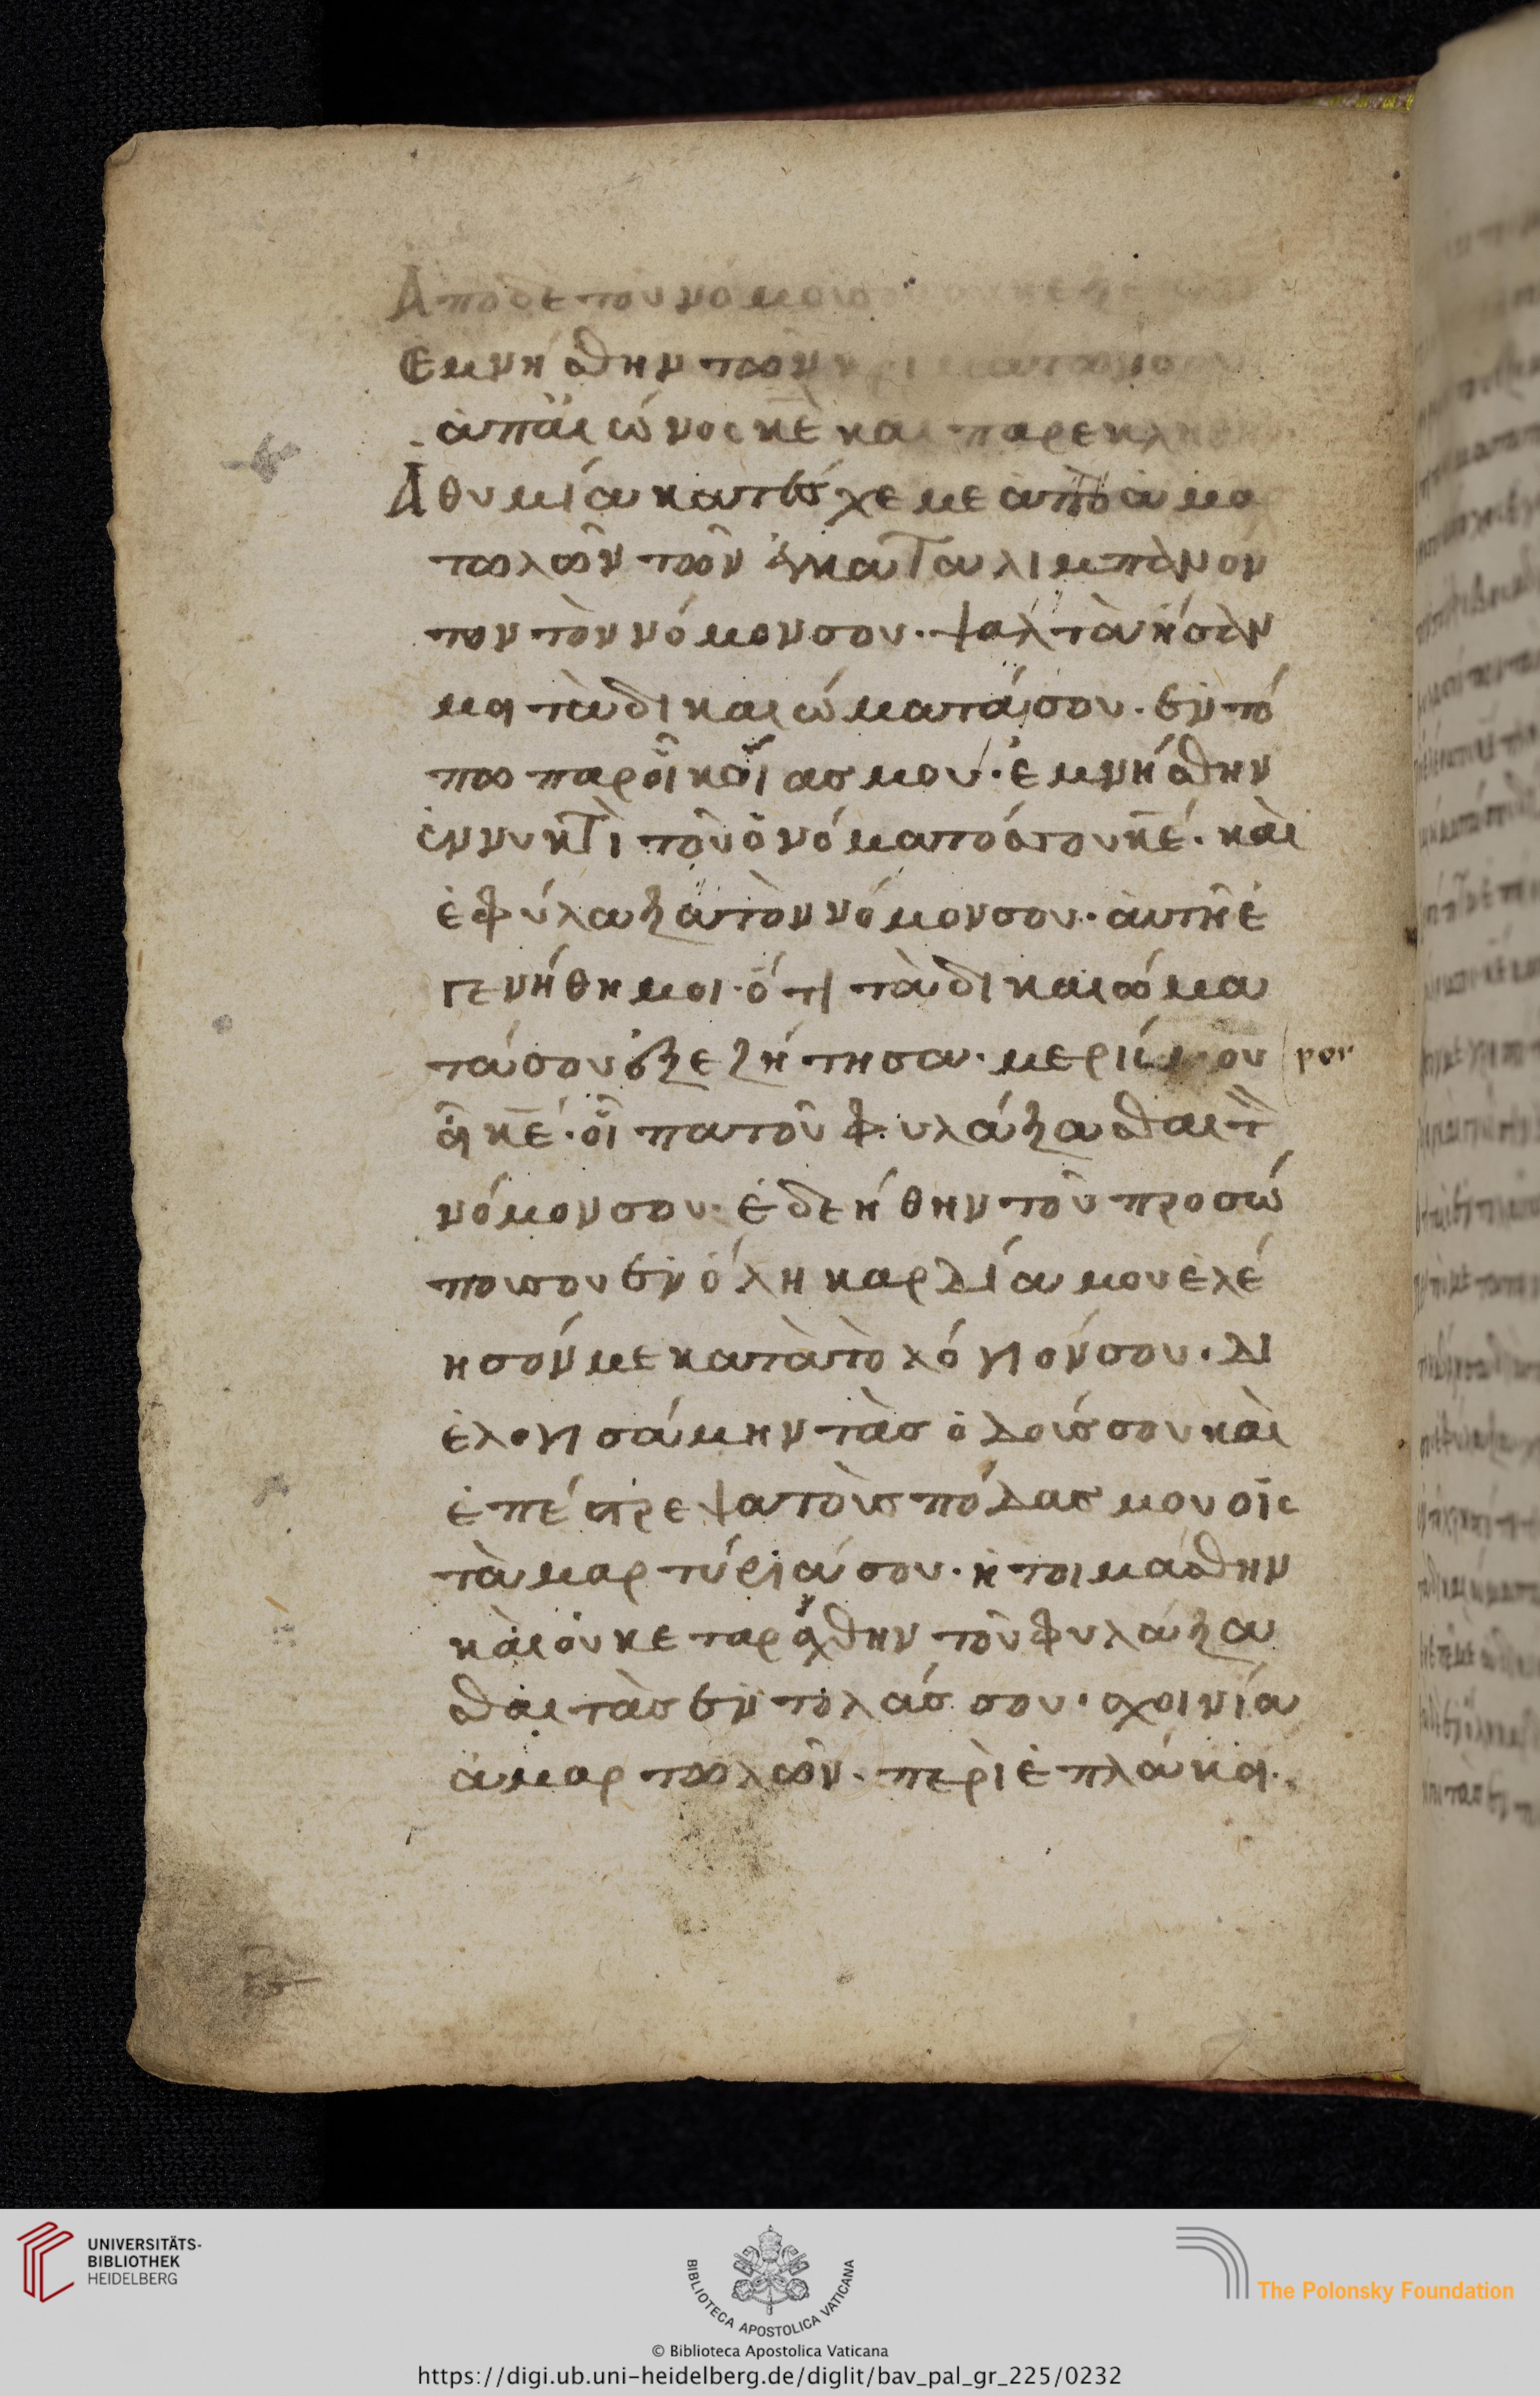 Ἀπὸ δὲ τοῦ νόμου σου οὐκ ἐξ
Ἐμνήσθην τῶν κριμάτων σου
ἀπαἰῶνος κε καὶ παρεκλήθην
Ἀθυμία κατέσχε με ἀπὸ ἁμαρ
τωλῶν τῶν ἐγκαταλιμπανόν
των τὸν νόμον σου. ψαλτὰ ἦσάν
μοι τὰ δικαιώματά σου. ἐν τό
πω παροικίας μου. ἐμνήσθην
ἐν νυκτὶ τοῦ ὀνόματός σου κε. καὶ
ἐφύλαξα τὸν νόμον σου. αὕτη ἐ
γενήθη μοι. ὅτι τὰ δικαιώμα
τά σου ἐξεζήτησα. μερίς μου
εἶ κε. εἶπα τοῦ φυλάξασθαι τ̀
νόμον σου. ἐδεήθην τοῦ προσώ
που σου ἐν ὅλη καρδία μου ἐλέ
ησόν με κατὰ τὸ λόγιόν σου. δι
ελογισάμην τὰς ὁδούς σου καὶ
ἐπέστρεψα τοὺς πόδας μου εἰς
τὰ μαρτύριά σου. ἡτοιμάσθην
καὶ οὐκ ἐταράχθην τοῦ φυλάξα
σθαι τὰς ἐντολάς σου. σχοινία
ἁμαρτωλῶν. περιεπλάκη.
UNIVERSITÄTS-
BIBLIOTHEK
HEIDELBERG
BIBLIOTECA APOSTOLICA VATICANA
The Polonsky Foundation
© Biblioteca Apostolica Vaticana
https://digi.ub.uni-heidelberg.de/diglit/bav_pal_gr_225/0232